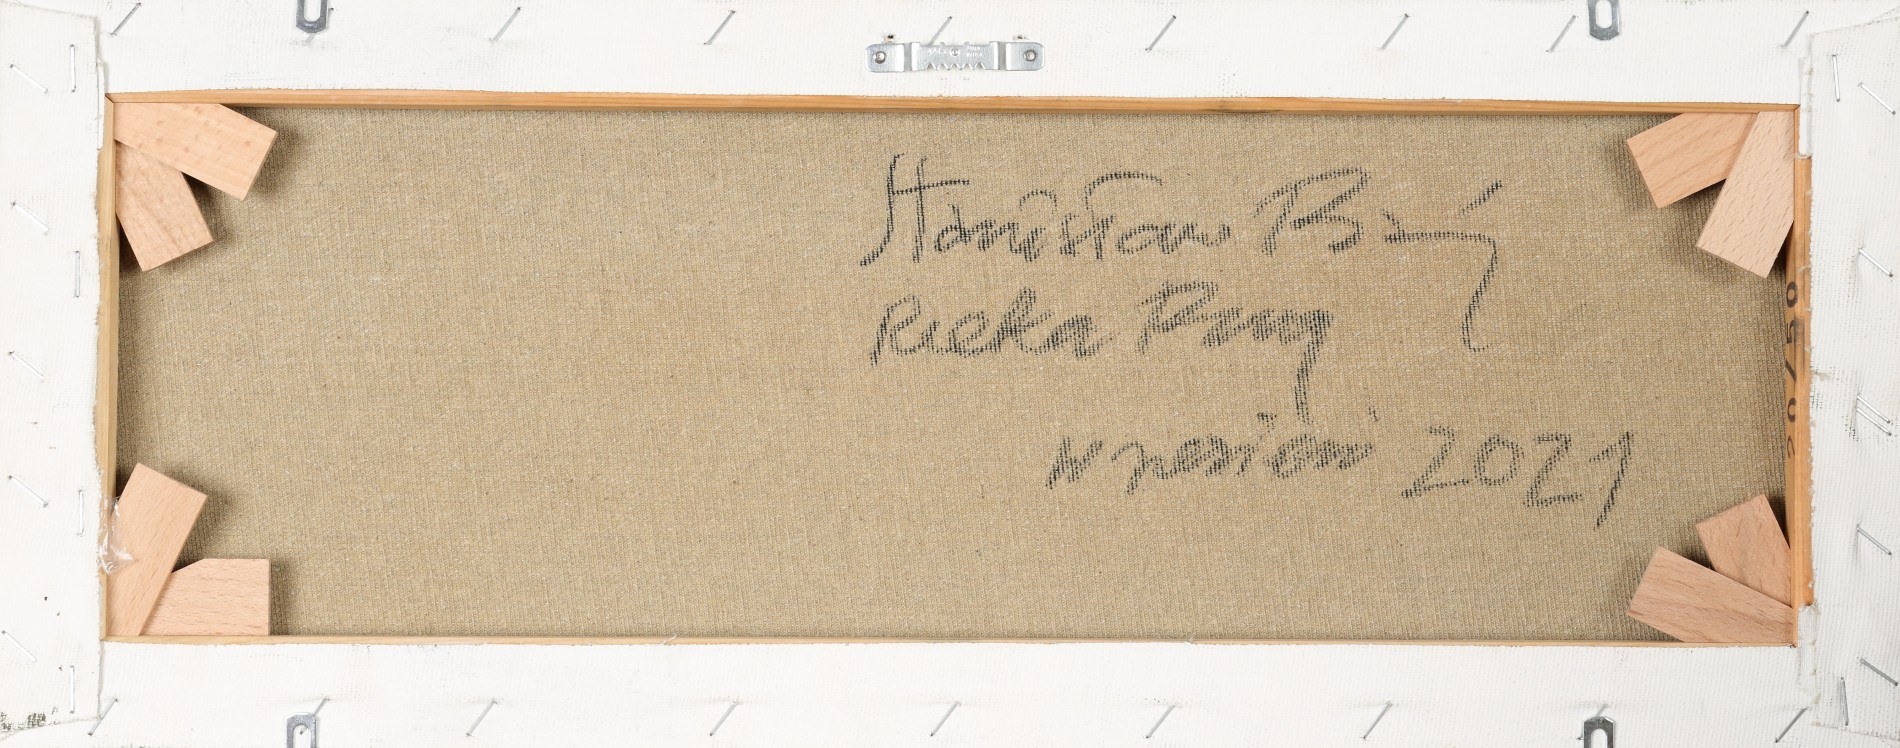 Stanisław Baj
Rzeka Bug
wrzesień 2021